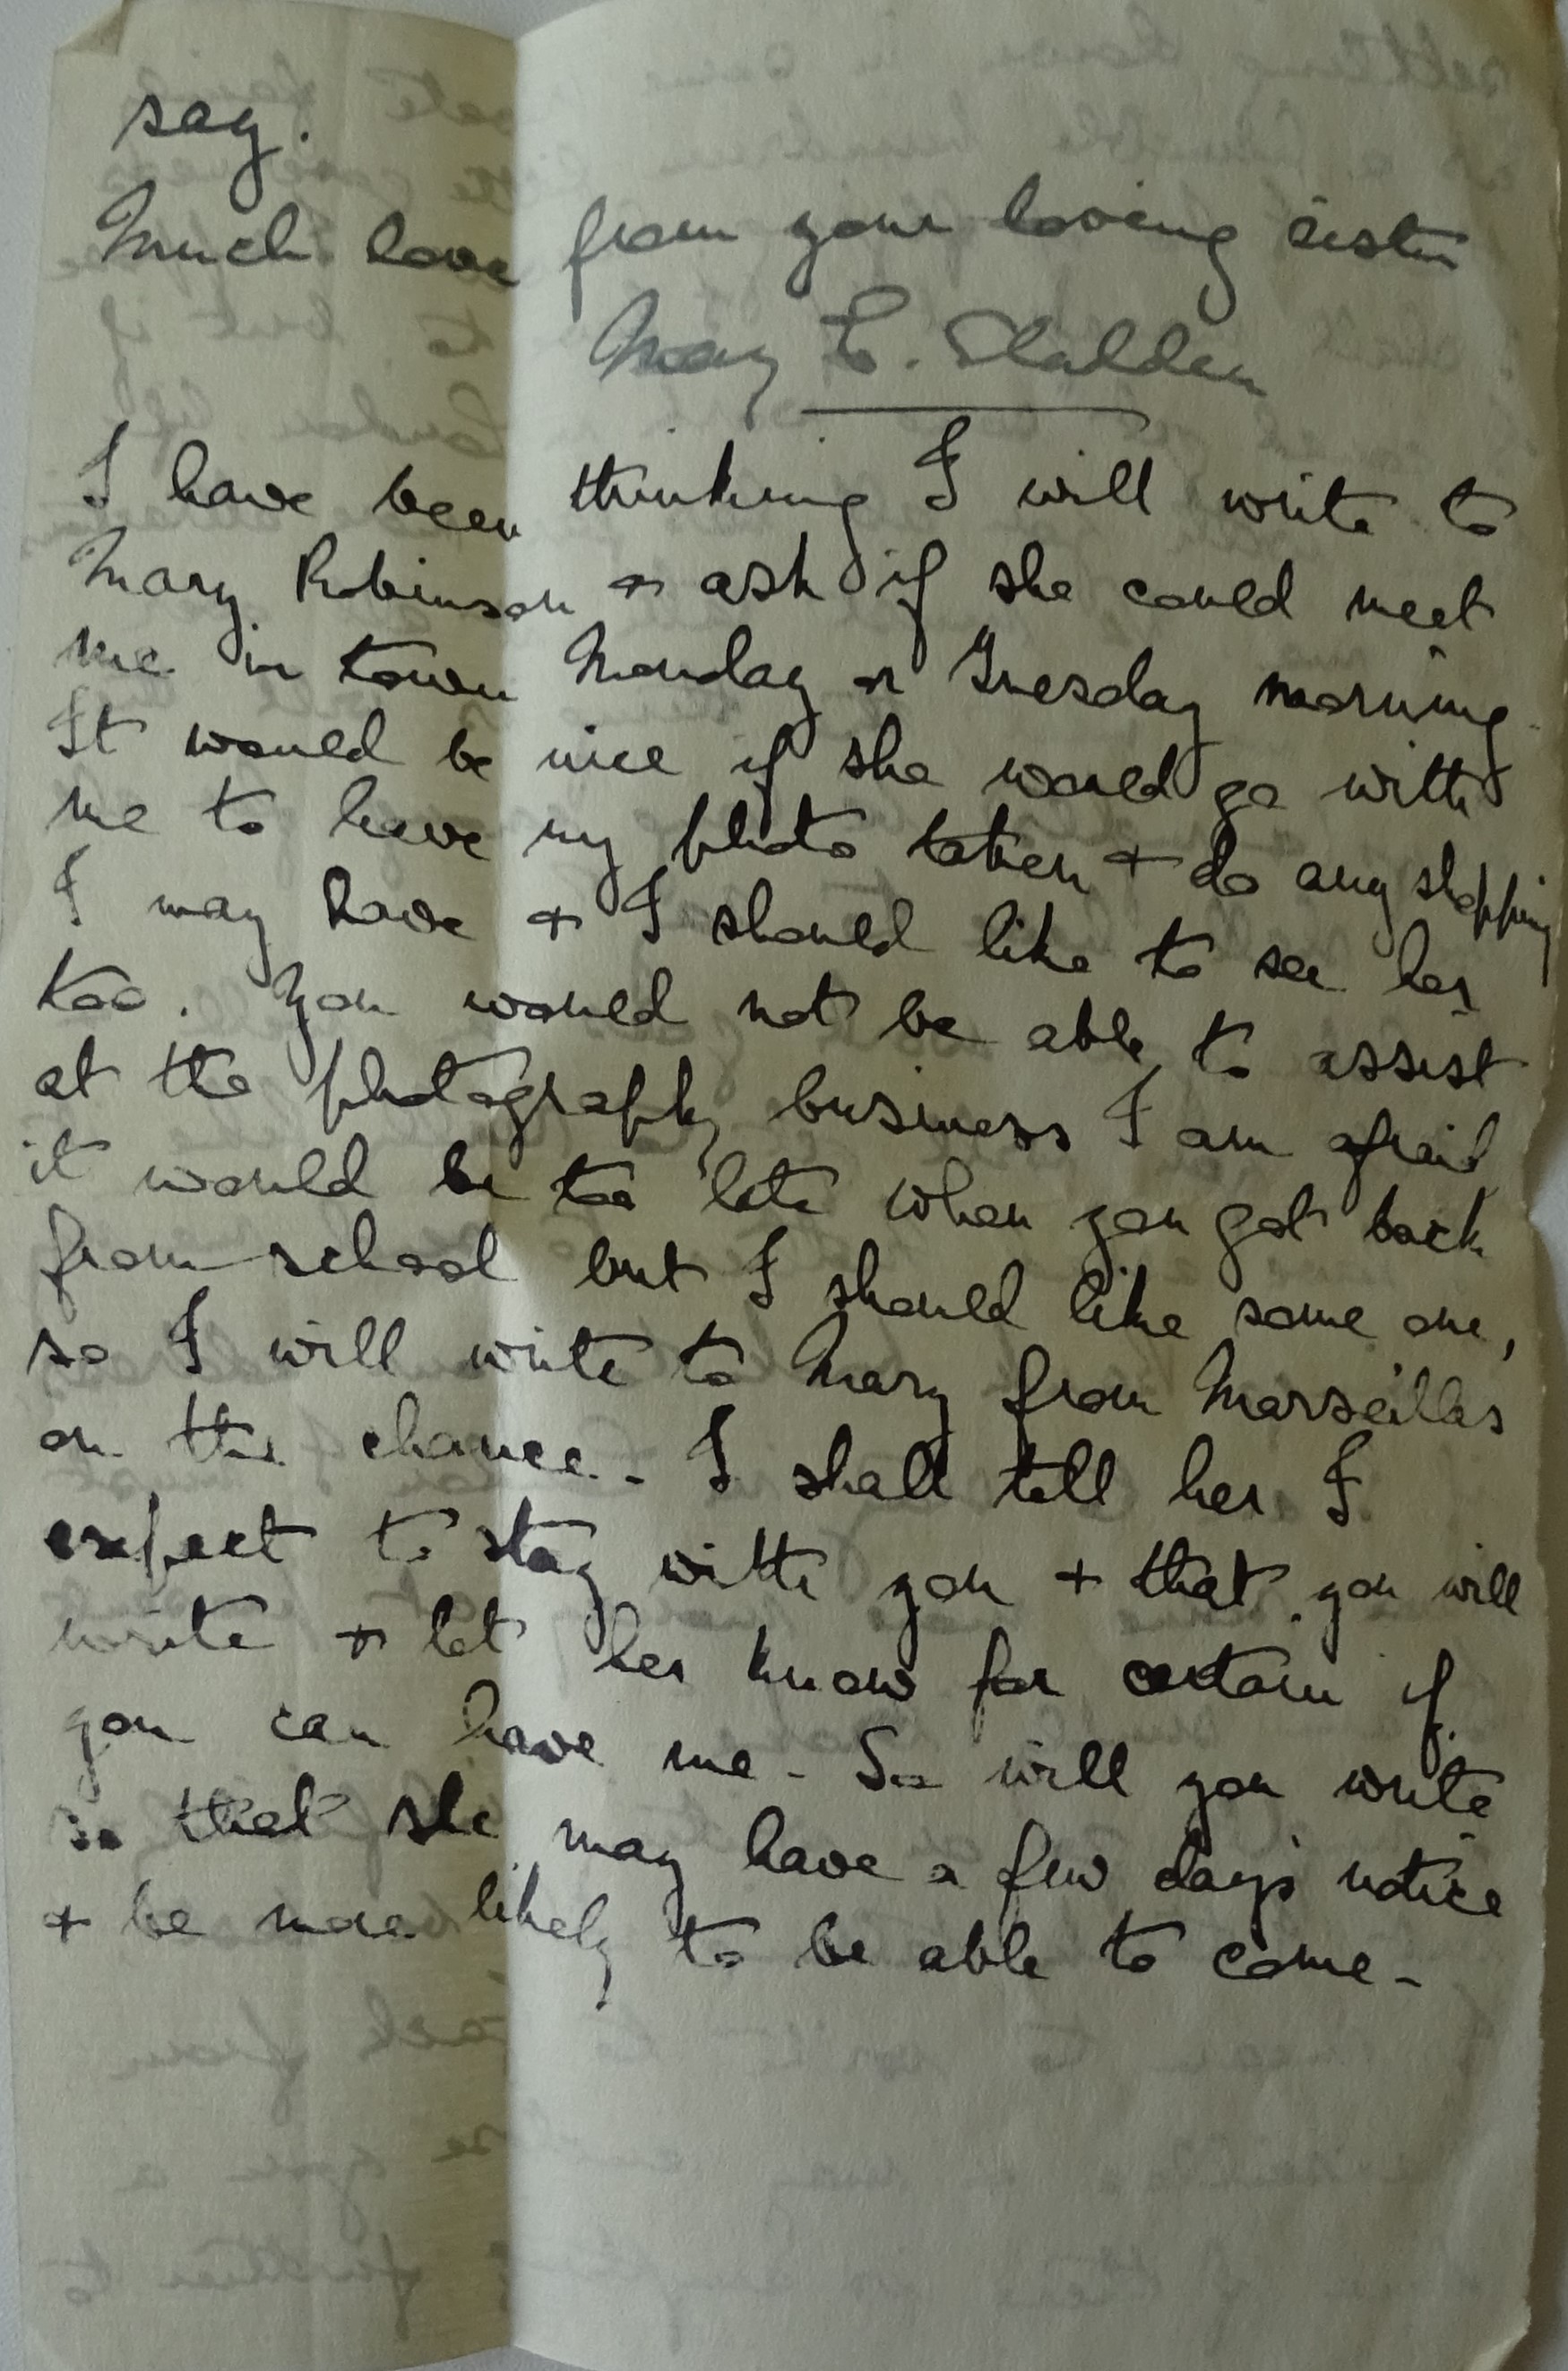 say.
Much love from your loving sister
May E. Sladden
I have been thinking I will write to
Mary Robinson + ask if she could meet
me in town Monday or Tuesday morning.
It would be nice if she would go with
me to have my photo taken + do any shopping
I may have + I should like to see her
too. You would not be able to assist
at the photography business I am afraid
it would be too late when you got back
from school but I should like some one,
so I will write to Mary from Marseilles
on the chance. - I shall tell her I
expect to stay with you + that you will
write + let her know for certain if
you can have me - So will you write
so that she may have a few days notice
+ be more likely to be able to come -